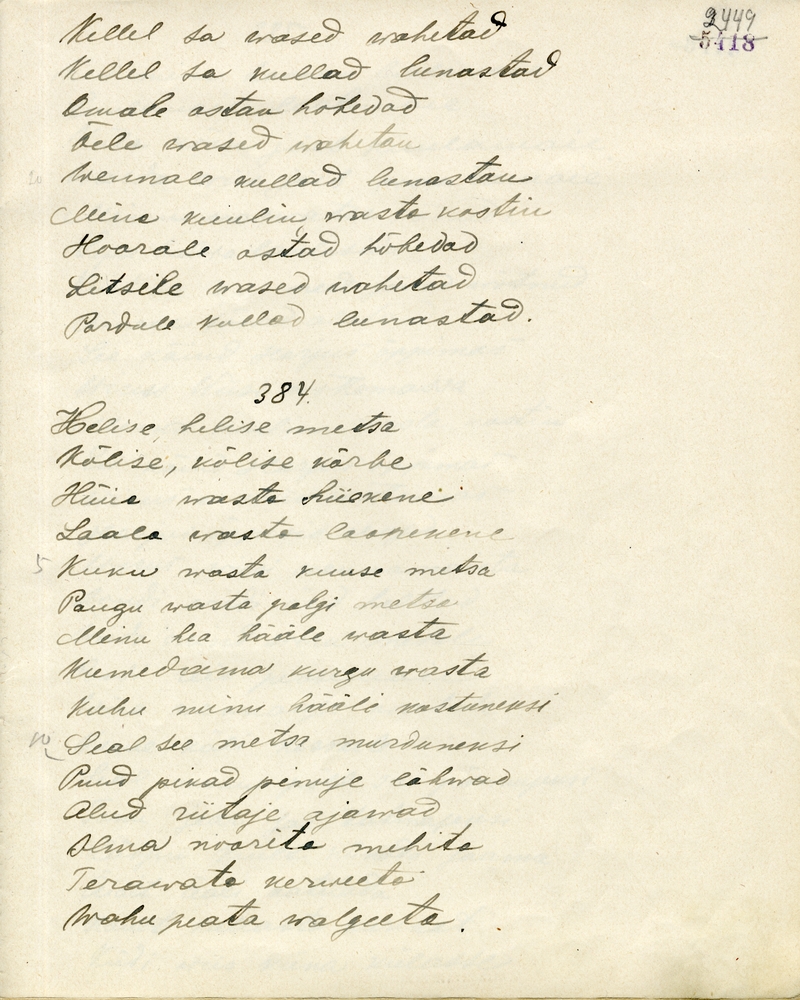 2449
5418
Kellel sa wased wahetad
Kellel sa kullad lunastad
Omale ostan hõbedad
Õele wased wahetan
20 Wennale kullad lunastan
Mina kuulin, wasta kostin
Hoorale ostad hõbedad
Litsile wased wahetad
Pordule kullad lunastad.
384.
Helise, helise metsa
Kõlise, kõlise kõrbe
Hüüa wasta hiiekene
Laala wasta laanekene
5 Kuku wasta kuuse metsa
Paugu wasta palgi metsa
Minu hea hääle wasta
Kumedama kurgu wasta
Kuhu minu hääli kostuneksi
10 Seal see metsa murduneksi
Puud pikad pinuje lähwad
Alud riitaje ajawad
Ilma noorita mehita
Terawata kerweeta
Wahu peata walgeeta.